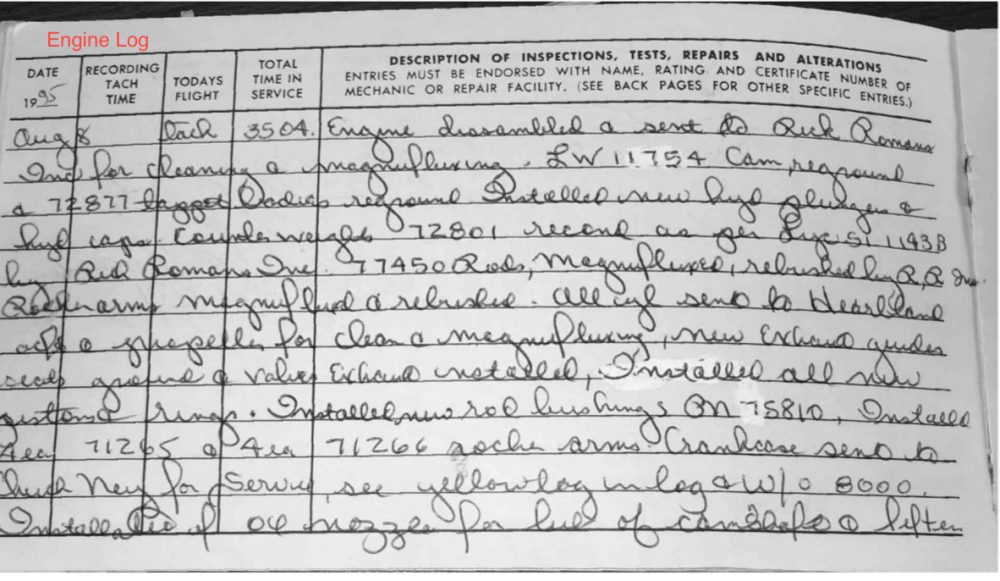 Engine Log
DATE
1995
RECORDING
TACH
TIME
TODAYS
FLIGHT
TOTAL
TIME IN
SERVICE
DESCRIPTION OF INSPECTIONS, TESTS, REPAIRS AND ALTERATIONS
ENTRIES MUST BE ENDORSED WITH NAME, RATING AND CERTIFICATE NUMBER OF
MECHANIC OR REPAIR FACILITY. (SEE BACK PAGES FOR OTHER SPECIFIC ENTRIES.)
Aug 8 Tach 3504. Engine dissambled & sent to Rick Romans
Inc for cleaning & magnufluxing. LW 11754 Cam, reground
& 72877 tappet bodies reground Installed new hyd plunges &
hyd caps. Counterweights 72801 recond as per Lyc SI 1143B
by Rick Romans Inc. 77450 Rods, magnufluxed, rebushed by R.R Inc.
Rocker arms magnufluxed & rebushed. All cyl send to Heartland
a propeller for clean & magnufluxing, new Exhaust guides
seats ground & valves Exhaust installed, Installed all new
pistons & rings. Installed new rod bushings PN 75810, Installed
4ea 71265 & 4ea 71266 rocke arms. Crankcase send to
Chuck Ney for Service, see yellow log in log & W/O 8000.
of oil nozzles for lub of camshaft & lifters